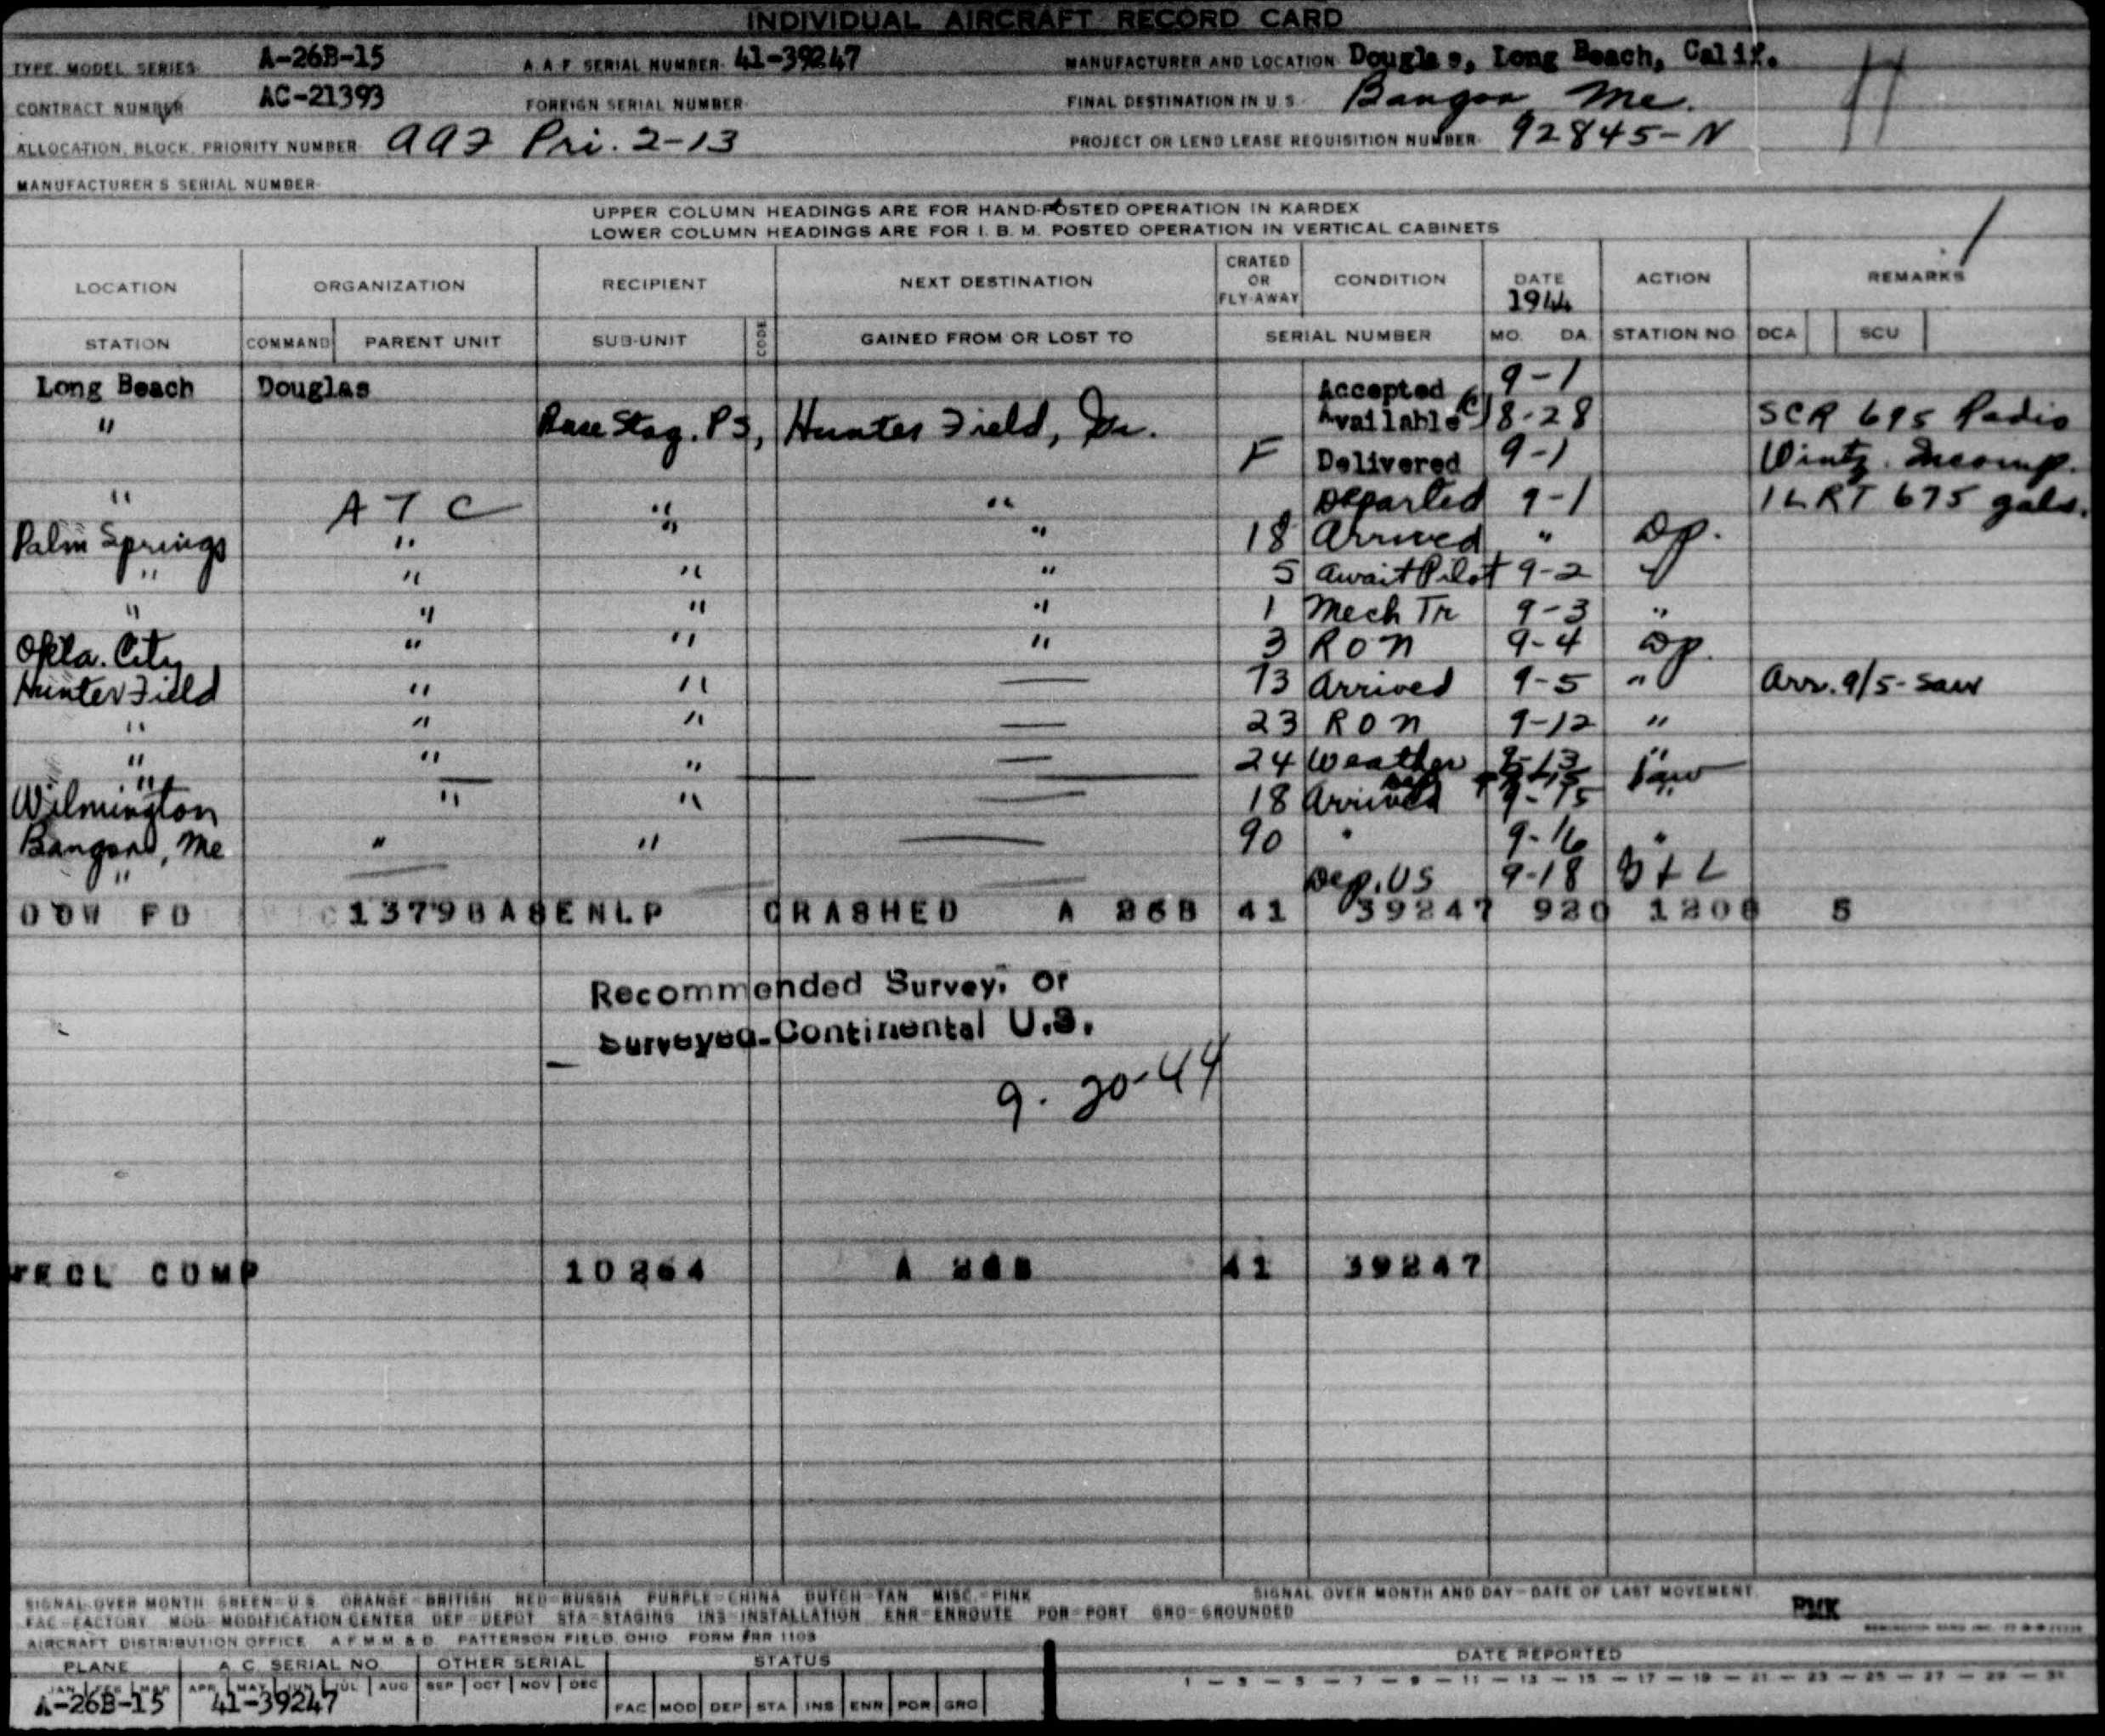 INDIVIDUAL AIRCRAFT RECORD CARD
TYPE MODEL SERIES A-26B-15 A.A.F. SERIAL NUMBER 41-39247 MANUFACTURER AND LOCATION Douglas, Long Beach, Calif.
CONTRACT NUMBER AC-21393 FOREIGN SERIAL NUMBER FINAL DESTINATION IN U S Bangor Me.
ALLOCATION, BLOCK, PRIORITY NUMBER AAF Pri. 2-13 PROJECT OR LEND LEASE REQUISITION NUMBER 92845-N
MANUFACTURER S SERIAL NUMBER
UPPER COLUMN HEADINGS ARE FOR HAND-POSTED OPERATION IN KARDEX
LOWER COLUMN HEADINGS ARE FOR I. B. M. POSTED OPERATION IN VERTICAL CABINETS
LOCATION ORGANIZATION RECIPIENT NEXT DESTINATION CRATED OR FLY-AWAY CONDITION DATE 1944 ACTION REMARKS
STATION COMMAND PARENT UNIT SUB-UNIT CODE GAINED FROM OR LOST TO SERIAL NUMBER MO. DA. STATION NO DCA SCU
Long Beach Douglas Accepted 9-1
" Base Stag. PS, Hunter Field, Ga. Available 8-28 SCR 695 Radio
F Delivered 9-1 Wintz. Incomp.
" ATC " " Departed 9-1 1LRT 675 gals.
Palm Springs " " " 18 Arrived " Dp.
" " " " 5 await Pilot 9-2 "
" " " " 1 Mech Tr 9-3 "
Okla. City " " " 3 RON 9-4 Dp.
Hunter Field " " — 73 Arrived 9-5 " Arr. 9/5-Saw
" " " — 23 RON 9-12 "
" " " — 24 Weather 9-13 "
Wilmington " " — 18 Arrived 9-15 "
Bangor, Me " " — 90 " 9-16 "
" — — Dep. US 9-18 B+L
DOW FD C 1379BASENLP CRASHED A 26B 41 39247 920 1208 5
Recommended Survey, or
Surveyed-Continental U.S.
9-20-44
RECL COMP 10264 A 26B 41 39247
SIGNAL OVER MONTH GREEN=U.S. ORANGE=BRITISH RED=RUSSIA PURPLE=CHINA DUTCH=TAN MISC.=PINK SIGNAL OVER MONTH AND DAY=DATE OF LAST MOVEMENT.
FAC=FACTORY MOD=MODIFICATION CENTER DEP=DEPOT STA=STAGING INS=INSTALLATION ENR=ENROUTE POR=PORT GRO=GROUNDED PMK
AIRCRAFT DISTRIBUTION OFFICE, A.F.M.M. & D. PATTERSON FIELD, OHIO FORM 1103
PLANE A C SERIAL NO. OTHER SERIAL STATUS DATE REPORTED
JAN FEB MAR APR MAY JUN JUL AUG SEP OCT NOV DEC 1 — 3 — 5 — 7 — 9 — 11 — 13 — 15 — 17 — 19 — 21 — 23 — 25 — 27 — 29 — 31
A-26B-15 41-39247 FAC MOD DEP STA INS ENR POR GRO